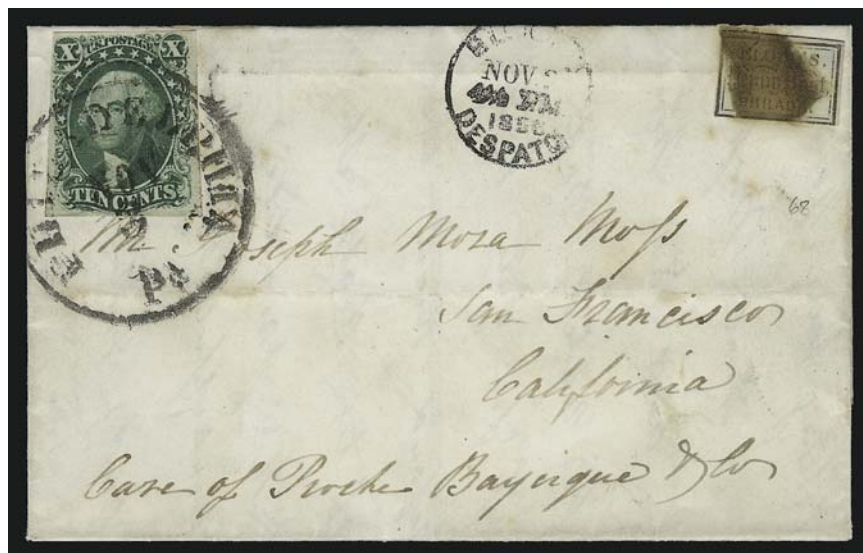 X U.S. POSTAGE. X
TEN CENTS
PHILADELPHIA
Pa
NOV
1856
DESPATCH
BLOOD'S
PHILAD
62
Mr Joseph Mora Moſs
San Francisco
California
Care of Pioche Bayerque & Co